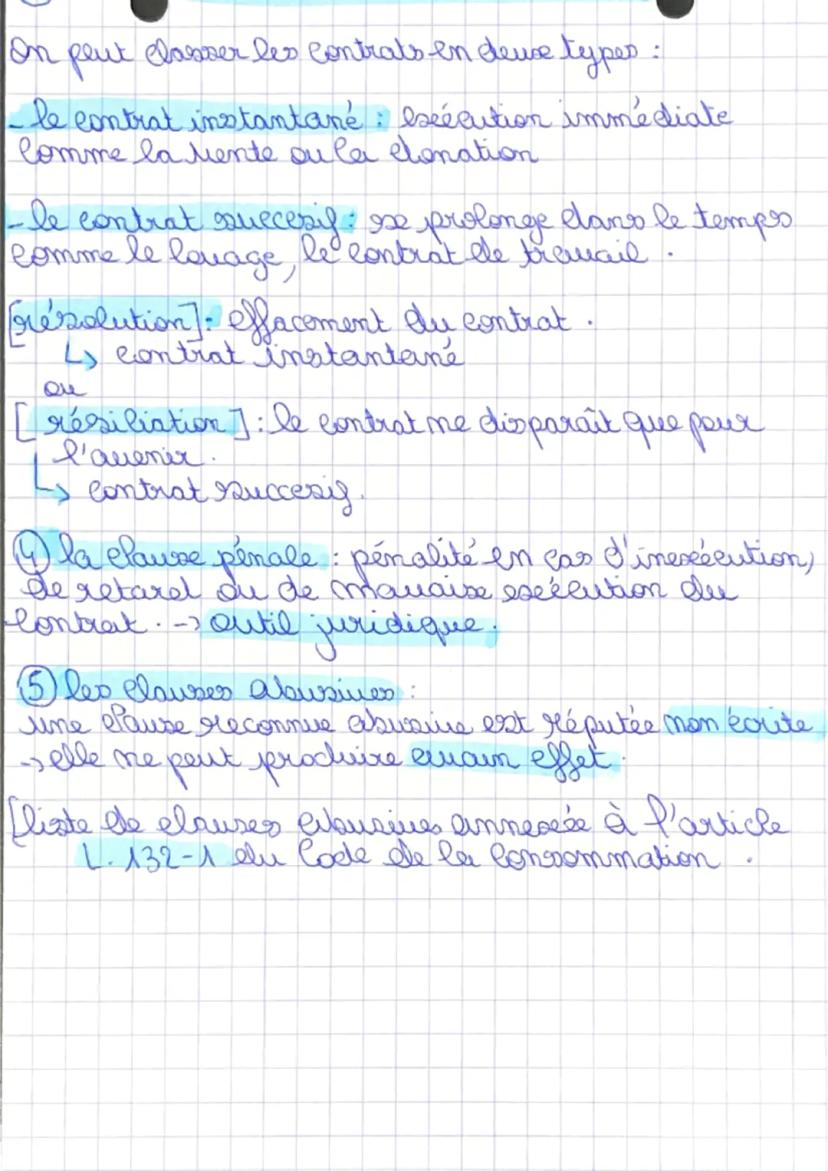 On peut classer les contrats en deux types :
- le contrat instantané : exécution immédiate
comme la vente ou la donation
- le contrat succesif : se prolonge dans le temps
comme le louage, le contrat de travail .
[résolution] : effacement du contrat .
↳ contrat instantané
ou
[ résiliation ] : le contrat ne disparaît que pour
l'avenir .
↳ contrat succesif .
④ la clause pénale : pénalité en cas d'inexécution,
de retard ou de mauvaise exécution du
contrat . -> outil juridique .
⑤ les clauses abusives :
une clause reconnue abusive est réputée non écrite
-> elle ne peut produire aucun effet .
[liste de clauses abusives annexée à l'article
L. 132-1 du Code de la Consommation .